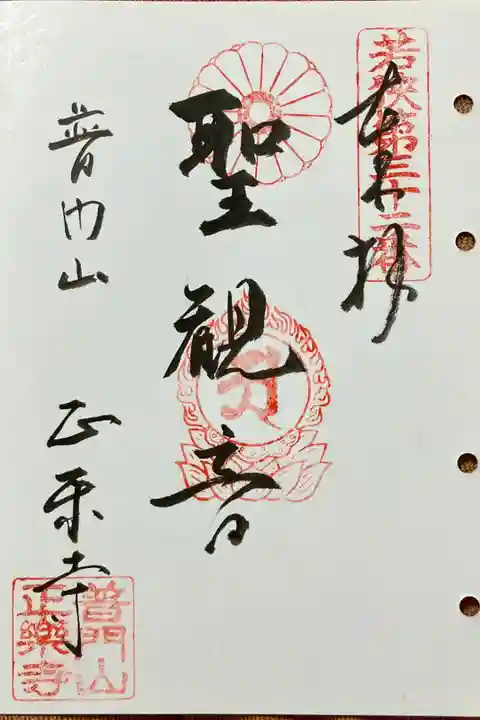 奉拝
若狭第三十二番
聖観音
普門山
正楽寺
普門山
正樂寺